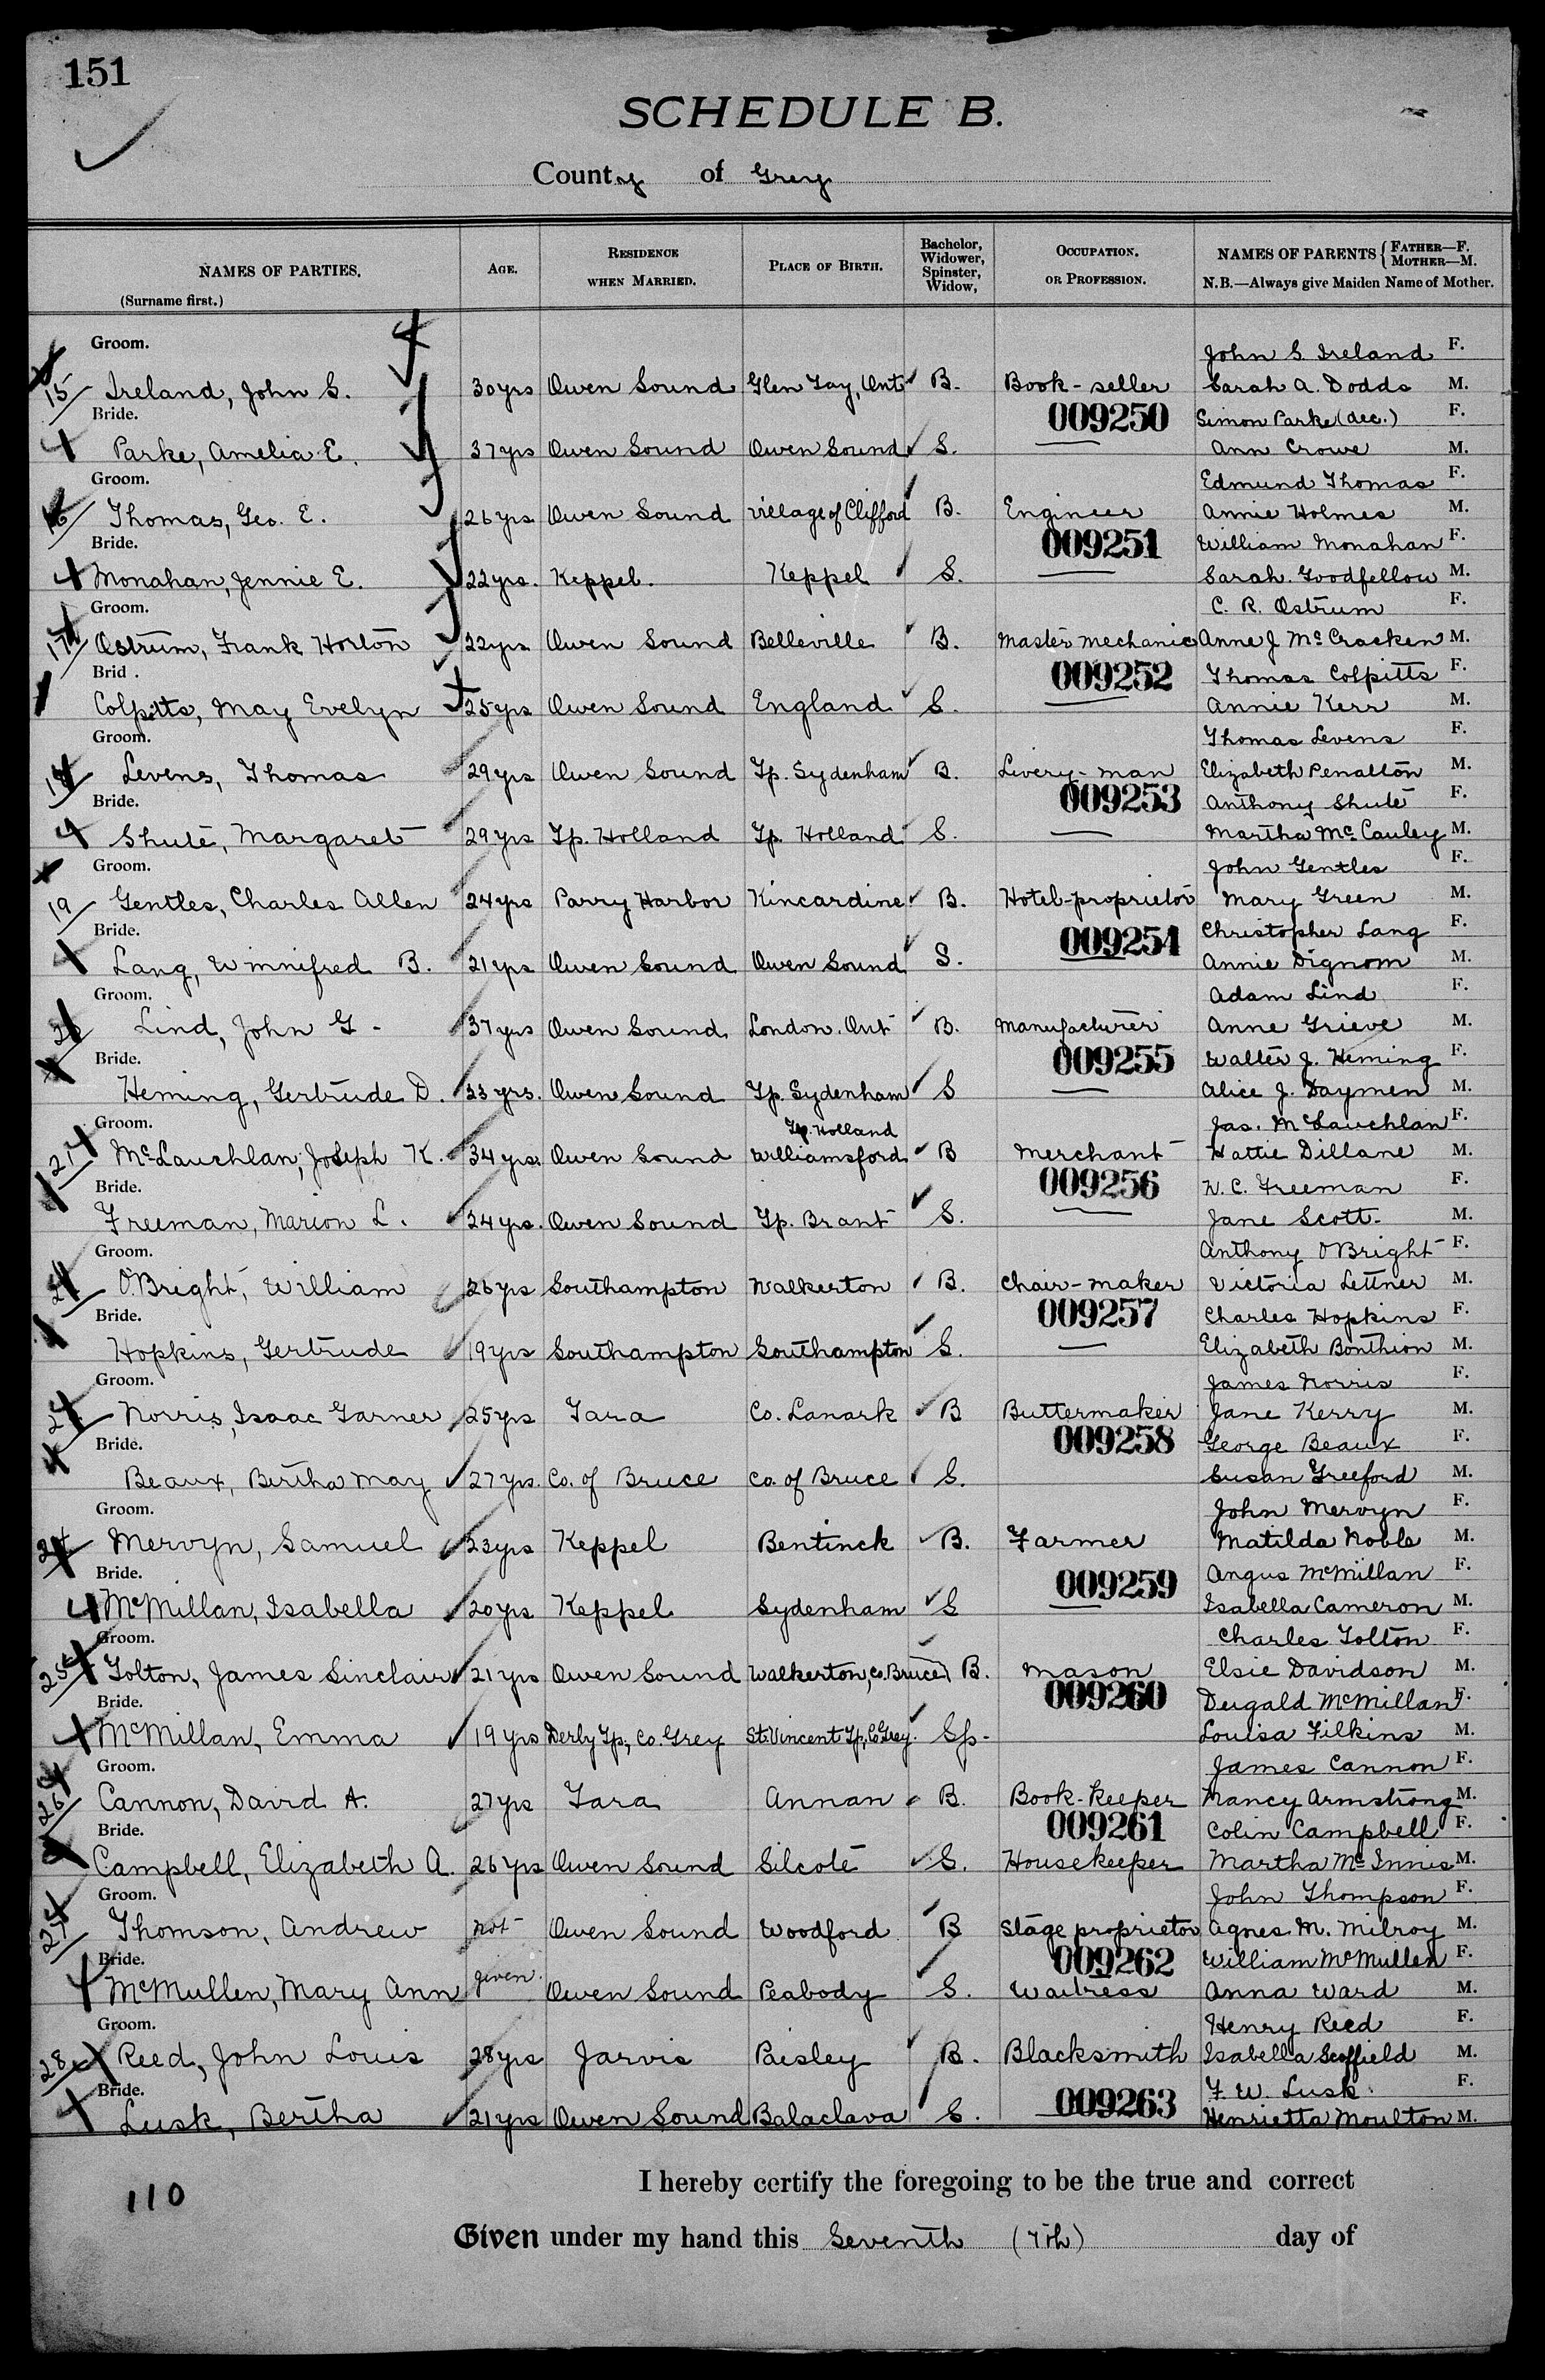 151
SCHEDULE B.
County of Grey
NAMES OF PARTIES. (Surname first.) AGE. RESIDENCE WHEN MARRIED. PLACE OF BIRTH. Bachelor, Widower, Spinster, Widow, OCCUPATION. OR PROFESSION. NAMES OF PARENTS { FATHER—F. MOTHER—M. N.B.—Always give Maiden Name of Mother.
Groom. John S. Ireland F.
15 Ireland, John S. 30 yrs Owen Sound Glen Tay, Ont B. Book-seller Sarah A. Dodds M.
Bride. 009250 Simon Parke (dec.) F.
Parke, Amelia E. 37 yrs Owen Sound Owen Sound S. Ann Crowe M.
Groom. Edmund Thomas F.
16 Thomas, Geo. E. 26 yrs Owen Sound Village of Clifford B. Engineer Annie Holmes M.
Bride. 009251 William Monahan F.
Monahan, Jennie E. 22 yrs. Keppel. Keppel S. Sarah Goodfellow M.
Groom. C. R. Ostrum F.
17 Ostrum, Frank Horton 22 yrs Owen Sound Belleville B. Master mechanic Anne J McCracken M.
Brid . 009252 Thomas Colpitts F.
Colpitts, May Evelyn 25 yrs Owen Sound England S. Annie Kerr M.
Groom. Thomas Levens F.
18 Levens, Thomas 29 yrs Owen Sound Tp. Sydenham B. Livery-man Elizabeth Penalton M.
Bride. 009253 Anthony Shute F.
Shute, Margaret 29 yrs Tp. Holland Tp. Holland S. Martha McCauley M.
Groom. John Gentles F.
19 Gentles, Charles Allen 24 yrs Parry Harbor Kincardine B. Hotel-proprietor Mary Green M.
Bride. 009254 Christopher Lang F.
Lang, Winnifred B. 21 yrs Owen Sound Owen Sound S. Annie Dignom M.
Groom. Adam Lind F.
20 Lind, John G - 37 yrs Owen Sound London. Ont B. Manufacturer Anne Grieve M.
Bride. 009255 Walter J. Heming F.
Heming, Gertrude D. 23 yrs. Owen Sound Tp. Sydenham S Alice J. Daymen M.
Groom. Tp. Holland Jas. McLauchlan F.
21 McLauchlan, Joseph K. 34 yrs Owen Sound Williamsford B Merchant Hattie Dillane M.
Bride. 009256 N. C. Freeman F.
Freeman, Marion L. 24 yrs. Owen Sound Tp. Brant S. Jane Scott. M.
Groom. Anthony O'Bright F.
O'Bright, William 26 yrs Southampton Walkerton B. Chair-maker Victoria Lettner M.
Bride. 009257 Charles Hopkins F.
Hopkins, Gertrude 19 yrs Southampton Southampton S. Elizabeth Bonthion M.
Groom. James Norris F.
Norris, Isaac Garner 25 yrs Tara Co. Lanark B Buttermaker Jane Kerry M.
Bride. 009258 George Beaux F.
Beaux, Bertha May 27 yrs. Co. of Bruce Co. of Bruce S. Susan Greeford M.
Groom. John Mervyn F.
Mervyn, Samuel 23 yrs Keppel Bentinck B. Farmer Matilda Noble M.
Bride. 009259 Angus McMillan F.
McMillan, Isabella 20 yrs Keppel Sydenham S Isabella Cameron M.
Groom. Charles Tolton F.
25 Tolton, James Sinclair 21 yrs Owen Sound Walkerton, Co. Bruce B. Mason Elsie Davidson M.
Bride. 009260 Dugald McMillan F.
McMillan, Emma 19 yrs Derby Tp., Co. Grey St. Vincent Tp, Co Grey. Sp- Louisa Filkins M.
Groom. James Cannon F.
26 Cannon, David A. 27 yrs Tara Annan B. Book-Keeper Nancy Armstrong M.
Bride. 009261 Colin Campbell F.
Campbell, Elizabeth A. 26 yrs Owen Sound Silcote S. Housekeeper Martha McInnis M.
Groom. John Thompson F.
27 Thomson, Andrew not Owen Sound Woodford B Stage proprietor Agnes M. Milroy M.
Bride. 009262 William McMullen F.
McMullen, Mary Ann given. Owen Sound Peabody S. Waitress Anna Ward M.
Groom. Henry Reed F.
28 Reed, John Louis 28 yrs Jarvis Paisley B. Blacksmith Isabella Scoffield M.
Bride. 009263 F. W. Lusk F.
Lusk, Bertha 21 yrs Owen Sound Balaclava S. Henrietta Moulton M.
I hereby certify the foregoing to be the true and correct
110
Given under my hand this Seventh (7th) day of